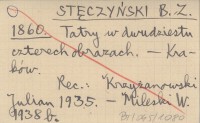 STĘCZYŃSKI B. Z.
1860. Tatry w dwudziestu
czterech obrazach. — Kra-
ków.
Rec.: Krzyżanowski
Julian 1935. — Mileski W.
1938 b.